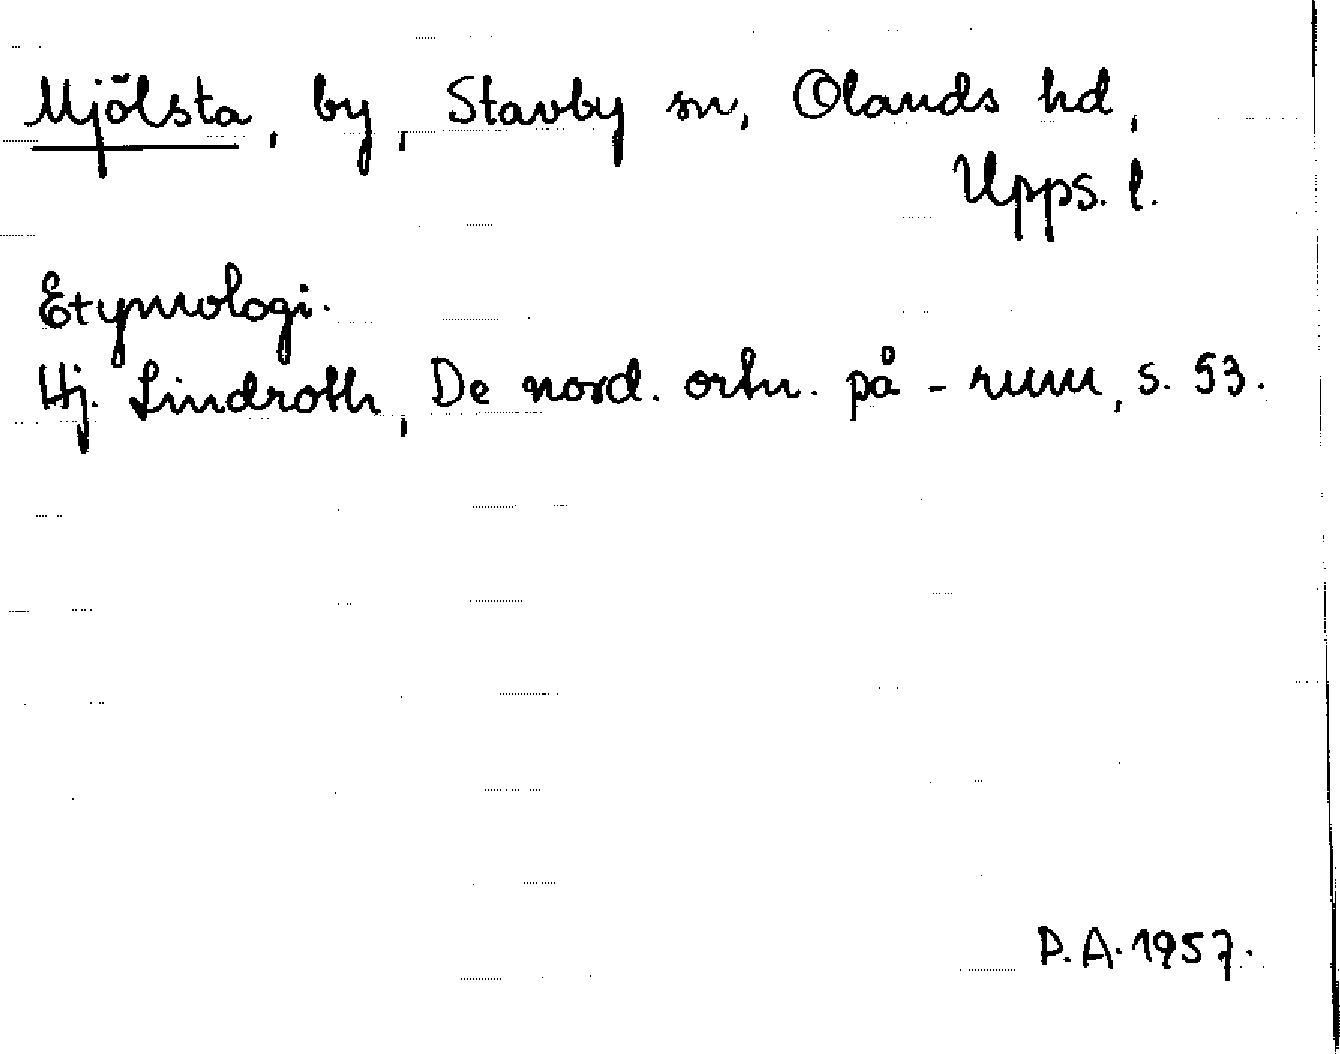 Mjölsta, by, Stavby sn, Olands hd,
Upps. l.
Etymologi.
Hj. Lindroth, De nord. ortn. på -rum, s. 53.
P.A. 1957.